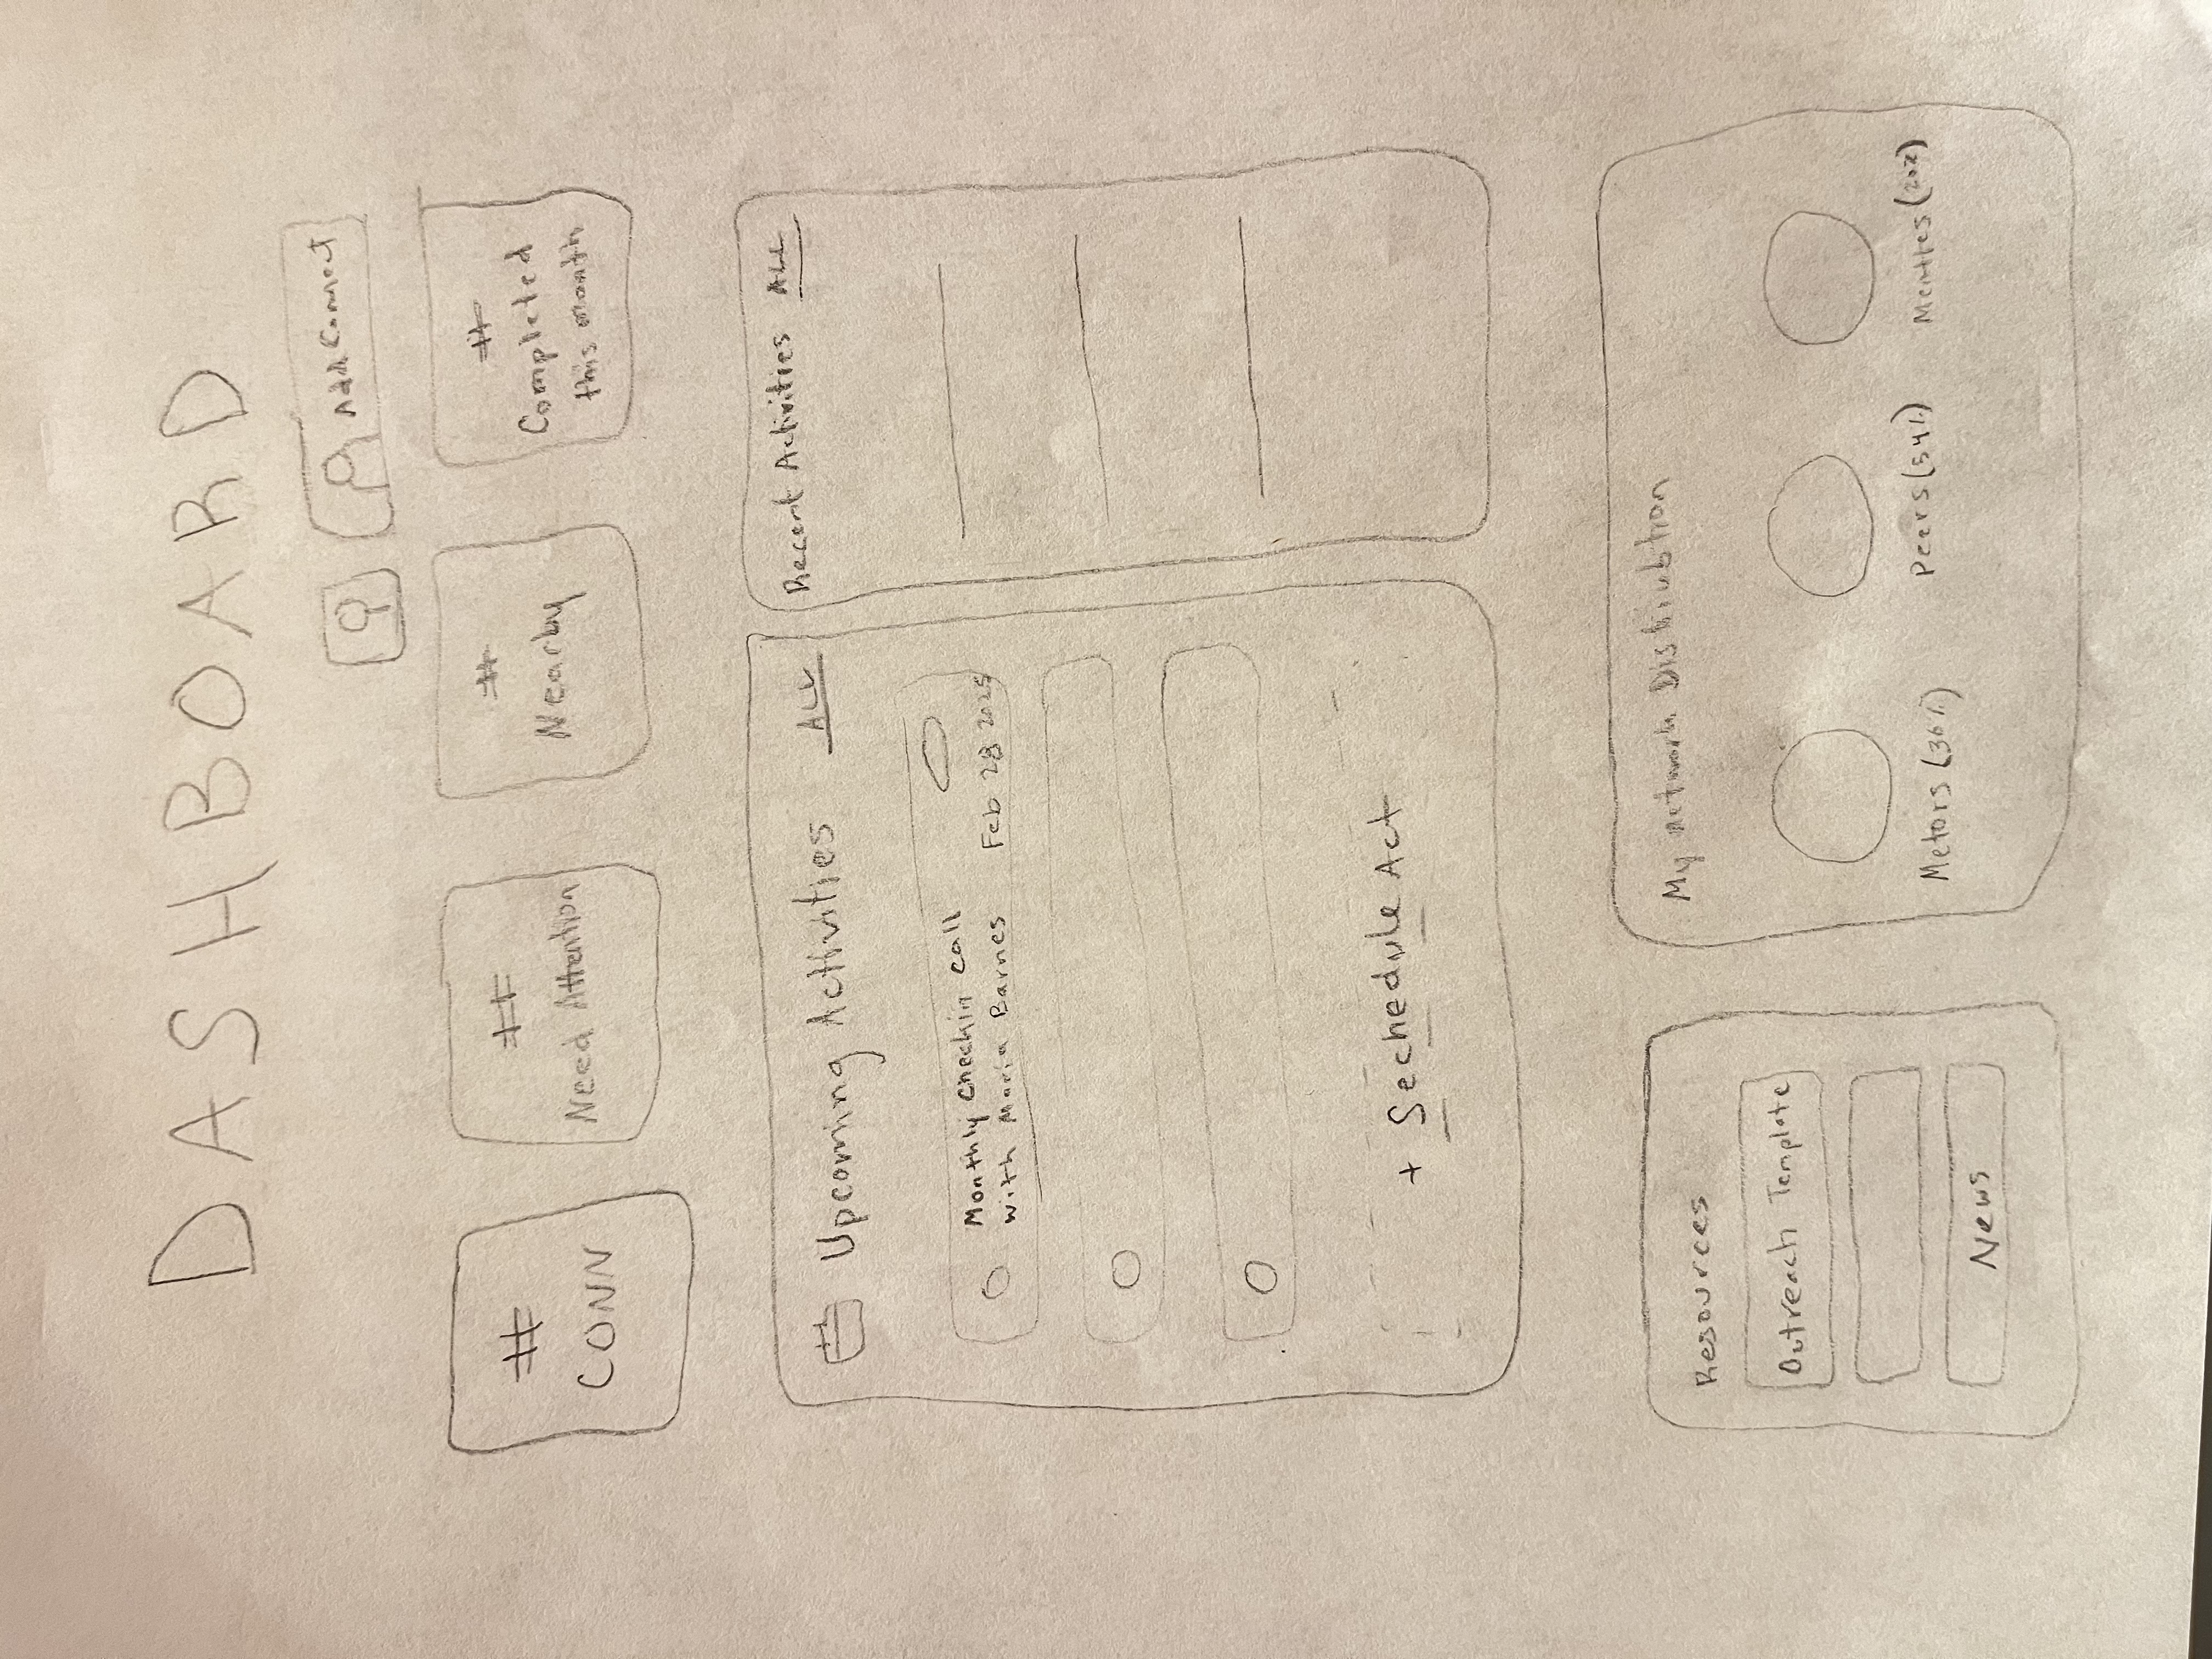 DASHBOARD
Add Connect
#
CONN
#
Need Attention
#
Nearby
#
Completed
this month
Upcoming Activities ALL
Monthly checkin call
with Maria Barnes Feb 28 2025
+ Sechedule Act
Recent Activities ALL
Resources
Outreach Template
News
My network Distriubtion
Metors (36%)
Peers (54%)
(20%)